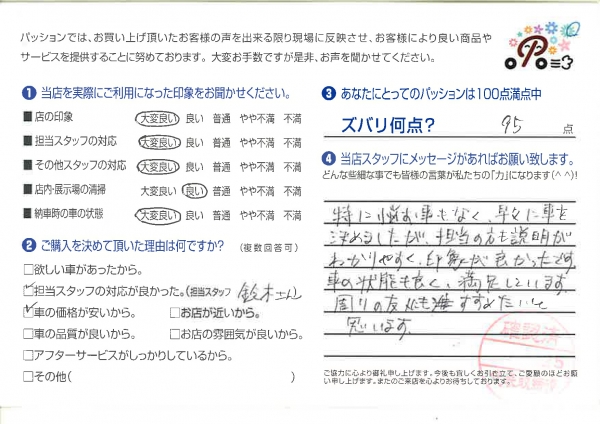 パッションでは、お買い上げ頂いたお客様の声を出来る限り現場に反映させ、お客様により良い商品や
サービスを提供することに努めております。大変お手数ですが是非、お声を聞かせてください。
❶ 当店を実際にご利用になった印象をお聞かせください。
■ 店の印象 大変良い 良い 普通 やや不満 不満
■ 担当スタッフの対応 大変良い 良い 普通 やや不満 不満
■ その他スタッフの対応 大変良い 良い 普通 やや不満 不満
■ 店内・展示場の清掃 大変良い 良い 普通 やや不満 不満
■ 納車時の車の状態 大変良い 良い 普通 やや不満 不満
❷ ご購入を決めて頂いた理由は何ですか? (複数回答可)
□欲しい車があったから。
☑担当スタッフの対応が良かった。(担当スタッフ 鈴木さん
☑車の価格が安いから。 □お店が近いから。
□車の品質が良いから。 □お店の雰囲気が良いから。
□アフターサービスがしっかりしているから。
□その他( )
❸ あなたにとってのパッションは100点満点中
ズバリ何点? 95 点
❹ 当店スタッフにメッセージがあればお願い致します。
どんな些細な事でも皆様の言葉が私たちの「力」になります(^ ^)!
特に悩む事もなく、早々に車を
決めましたが、担当の方も説明が
わかりやすく、印象が良かったです
車の状態も良く、満足しています
周りの友人にも進すすめたいと
思います。
確認済
ご協力に心より御礼申し上げます。今後も宜しくお引き立て、ご愛顧のほどお願
い申し上げます。またのご来店を心よりお待ちしております。